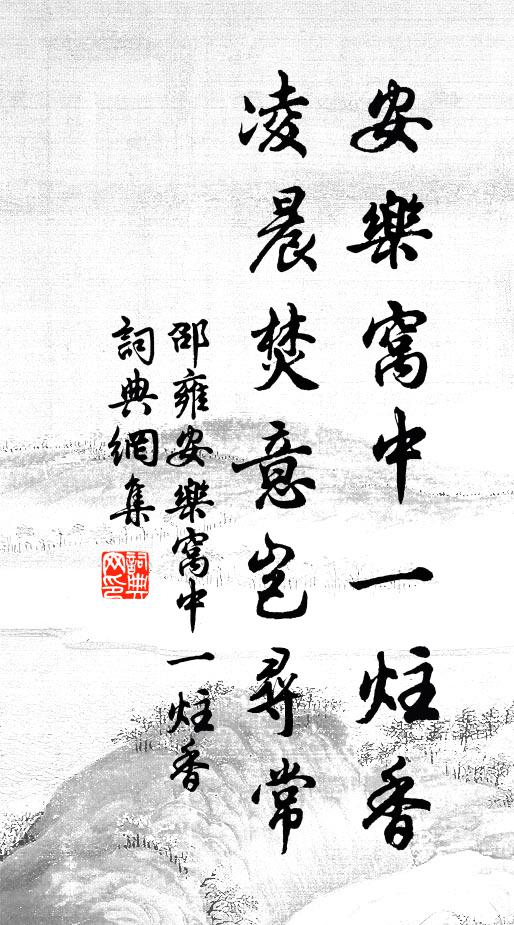 安樂窩中一炷香
凌晨焚意豈尋常
邵雍安樂窩中一炷香
詞典網集
詞典網印